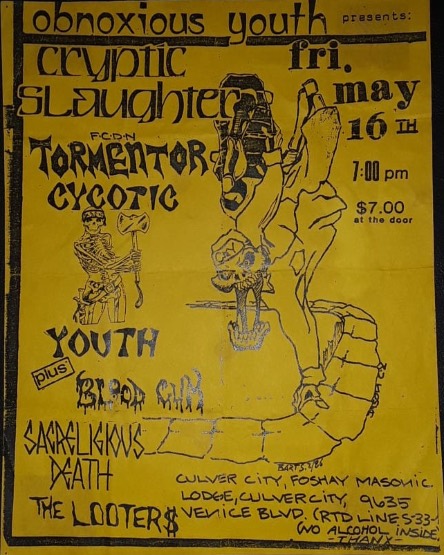 obnoxious youth presents:
cryptic
slaughter
fri.
may
16 TH
7:00 pm
$7.00
at the door
F.C.D.N
TORMENTOR
CYCOTIC
YOUTH
plus
BLOOD CUM
SACRELIGIOUS
DEATH
THE LOOTER$
CULVER CITY, FOSHAY MASONIC
LODGE, CULVER CITY, 9635
VENICE BLVD. (RTD LINES 33-
(NO ALCOHOL INSIDE
-THANX-